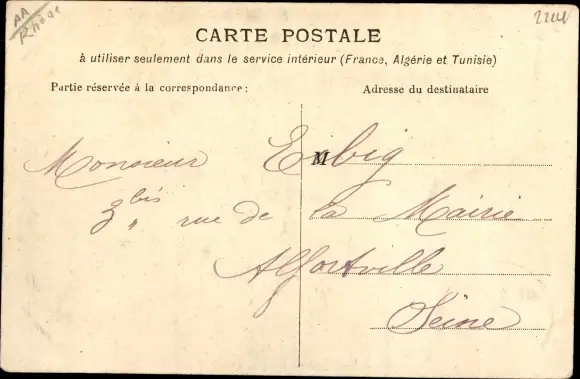 AA
Rhône
CARTE POSTALE
à utiliser seulement dans le service intérieur (France, Algérie et Tunisie)
Partie réservée à la correspondance:
Adresse du destinataire
M
Monsieur Erbig
3 bis " rue de la Mairie
Alfortville
Seine